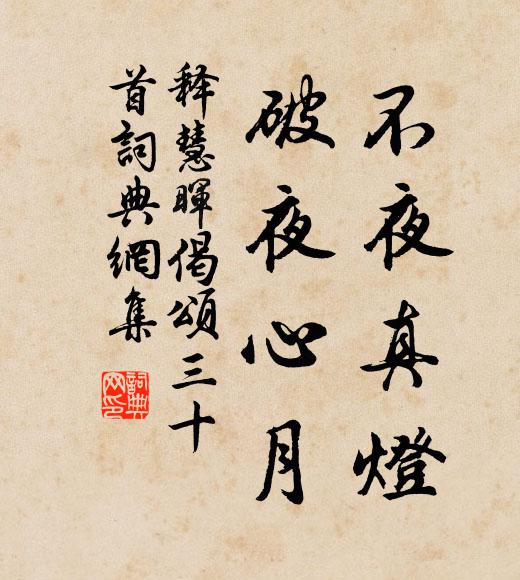 不夜真燈
破夜心月
释慧暉偈頌三十
首詞典網集
詞典
网印